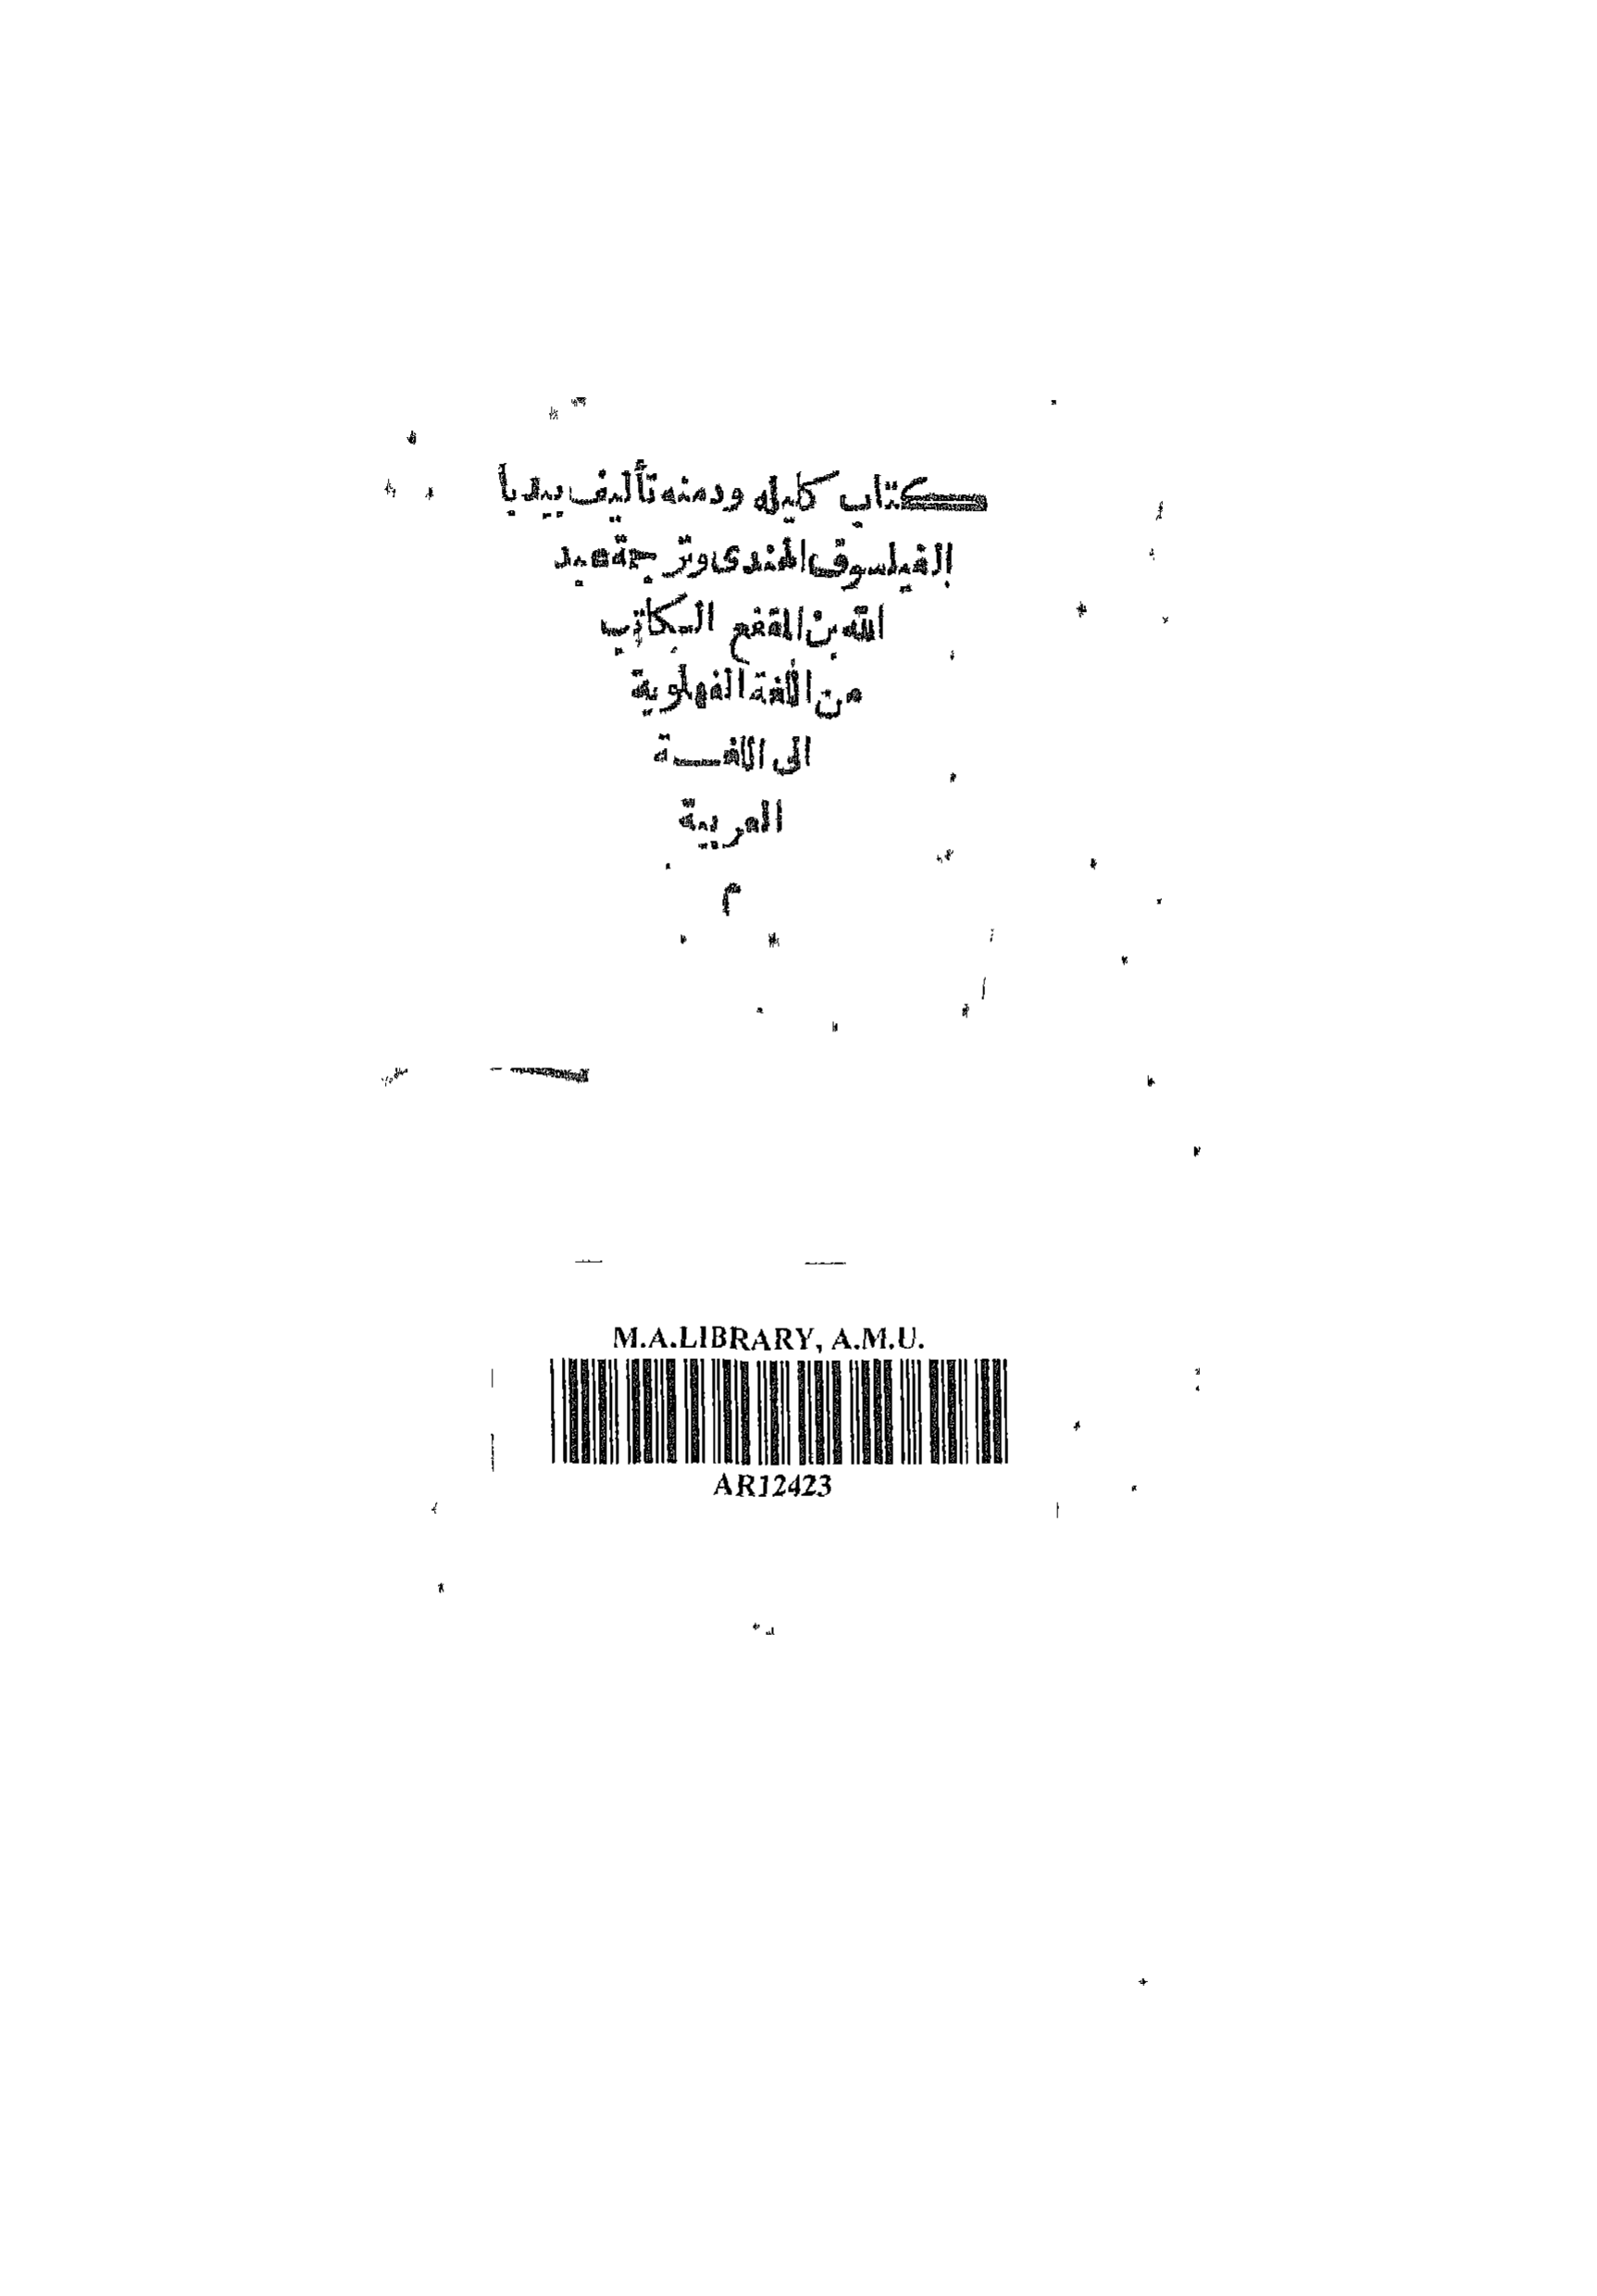 كتاب كليله ودمنه تأليف بيدبا
الفيلسوف الهندى وترجمة عبد
الله بن المقفع الكاتب
من اللغة الفهلوية
الى اللغـــة
العربية
م
M.A.LIBRARY, A.M.U.
AR12423